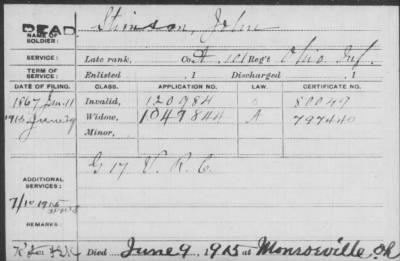 DEAD
NAME OF SOLDIER: Stinson, John
SERVICE: Late rank, Co. A, 101 Reg't Ohio Inf.
TERM OF SERVICE: Enlisted , 1 Discharged , 1
DATE OF FILING. CLASS. APPLICATION NO. LAW. CERTIFICATE NO.
1867 Jan 11 Invalid, 120984 80049
1915 June 29 Widow, 1047844 A 797440
Minor,
G 17 V. R. C.
ADDITIONAL SERVICES:
REMARKS:
Died June 9, 1915 at Monroeville, Oh